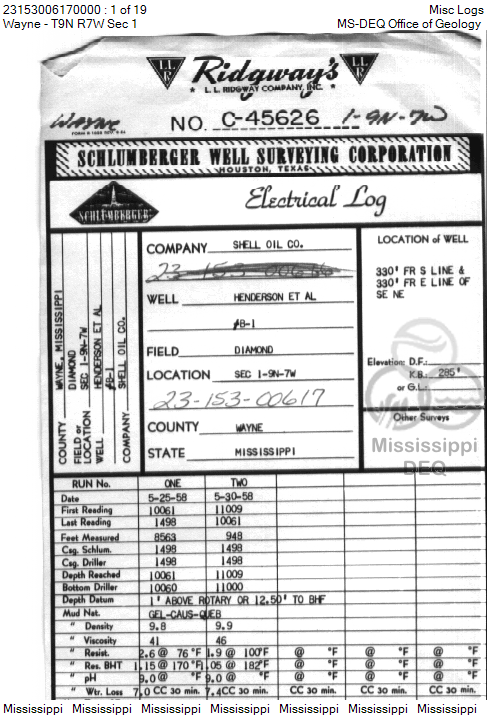 23153006170000 : 1 of 19 Misc Logs
Wayne - T9N R7W Sec 1 MS-DEQ Office of Geology
LLR Ridgway's LLR
* L. L. RIDGWAY COMPANY, INC. *
WAYNE NO. C-45626 1-9N-7W
SCHLUMBERGER WELL SURVEYING CORPORATION
HOUSTON, TEXAS
SCHLUMBERGER Electrical Log
COUNTY WAYNE, MISSISSIPPI
FIELD or LOCATION DIAMOND SEC 1-9N-7W
WELL HENDERSON ET AL #B-1
COMPANY SHELL OIL CO.
COMPANY SHELL OIL CO.
WELL HENDERSON ET AL
#B-1
FIELD DIAMOND
LOCATION SEC 1-9N-7W
23-153-00617
COUNTY WAYNE
STATE MISSISSIPPI
LOCATION of WELL
330' FR S LINE &
330' FR E LINE OF
SE NE
Elevation: D.F.:
K.B.: 285'
or G.L.:
Other Surveys
Mississippi
DEQ
RUN No. ONE TWO
Date 5-25-58 5-30-58
First Reading 10061 11009
Last Reading 1498 10061
Feet Measured 8563 948
Csg. Schlum. 1498 1498
Csg. Driller 1498 1498
Depth Reached 10061 11009
Bottom Driller 10060 11000
Depth Datum 1' ABOVE ROTARY OR 12.50' TO BHF
Mud Nat. GEL-CAUS-QUEB
" Density 9.8 9.9
" Viscosity 41 46
" Resist. 2.6 @ 76 °F 1.9 @ 100°F @ °F @ °F @ °F @ °F
" Res. BHT 1.15 @ 170 °F 1.05 @ 182°F @ °F @ °F @ °F @ °F
" pH 9.0 @ °F 9.0 @ °F @ °F @ °F @ °F @ °F
" Wtr. Loss 7.0 CC 30 min. 7.4 CC 30 min. CC 30 min. CC 30 min. CC 30 min. CC 30 min.
Mississippi Mississippi Mississippi Mississippi Mississippi Mississippi Mississippi